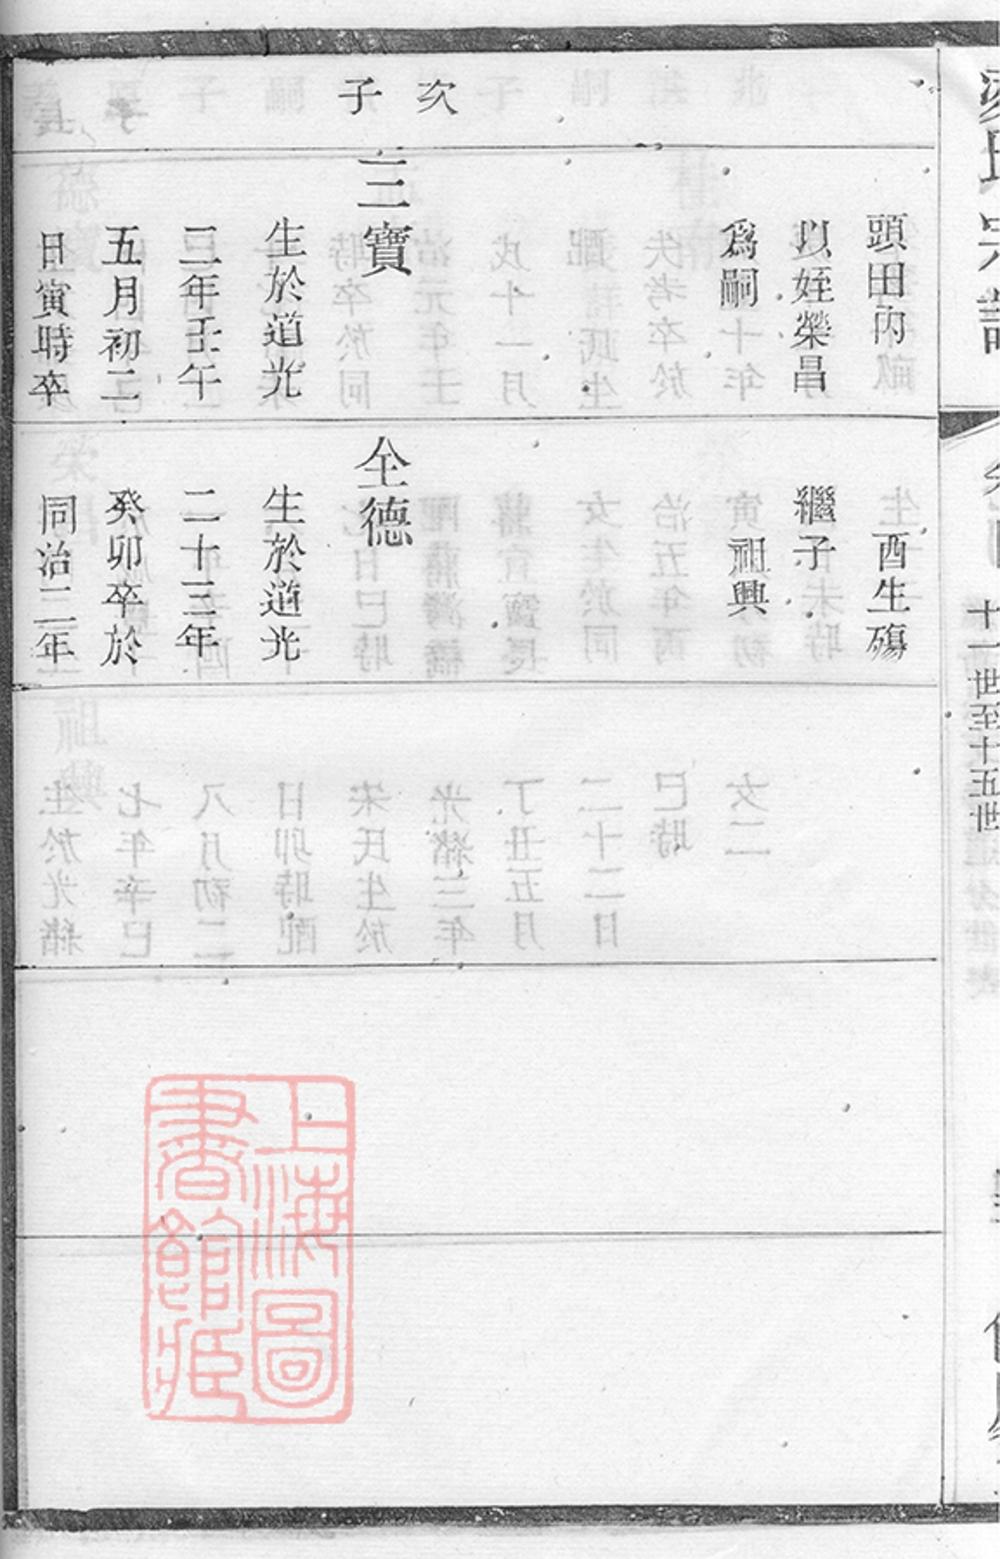 次
子
頭田內
以姪榮昌
爲嗣
三寶
生於道光
二年壬午
五月初二
日寅時卒
酉生殤
繼子
祖興
全德
生於道光
二十三年
癸卯卒於
同治二年
十一世至十五世
上海圖
書館藏